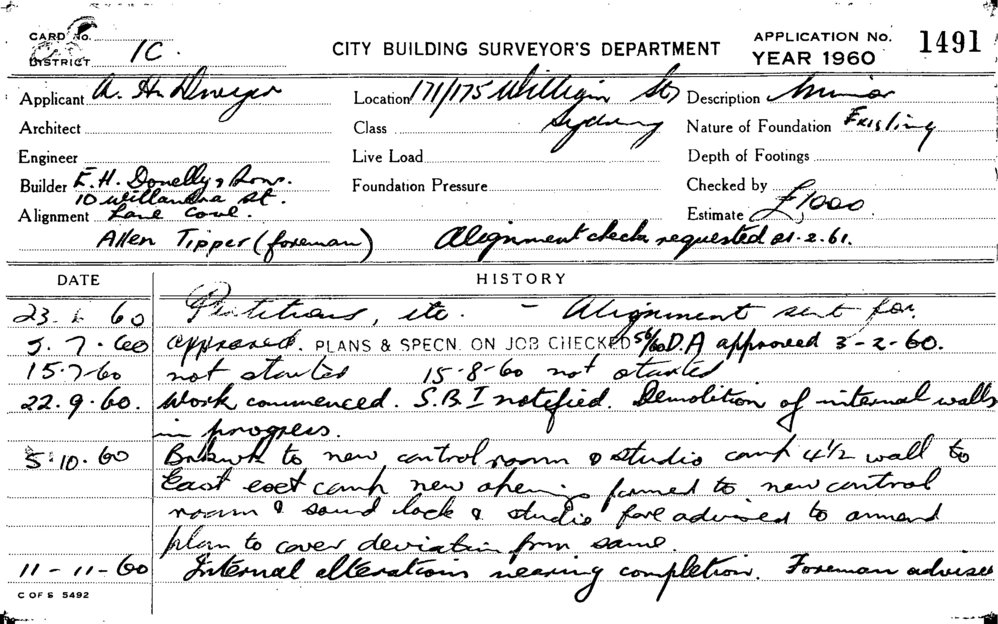 CARD No.
DISTRICT 1C.
CITY BUILDING SURVEYOR'S DEPARTMENT
APPLICATION No. 1491
YEAR 1960
Applicant A. H. Dwyer
Location 171/175 William St,
Sydney
Description Minor
Architect
Class
Nature of Foundation Existing
Engineer
Live Load
Depth of Footings
Builder E.H. Donelly & Sons.
10 Willandra St.
Foundation Pressure
Checked by
Alignment Lane Cove.
Estimate £1000.
Allen Tipper (foreman) Alignment check requested 21.2.61.
DATE HISTORY
23. 60 Partitions, etc. - Alignment sent for.
5.7.60 approved. PLANS & SPECN. ON JOB CHECKED 56/60 D.A approved 3-2-60.
15-7-60 not started 15-8-60 not started
22.9.60. Work commenced. S.B.I notified. Demolition of internal walls
in progress.
5.10.60 Brkwk to new control room & studio comp 4½ wall to
East comp new openings formed to new control
room & sound lock & studio advised to amend
plan to cover deviation from same.
11-11-60 Internal alterations nearing completion. Foreman advised
C OF S 5492